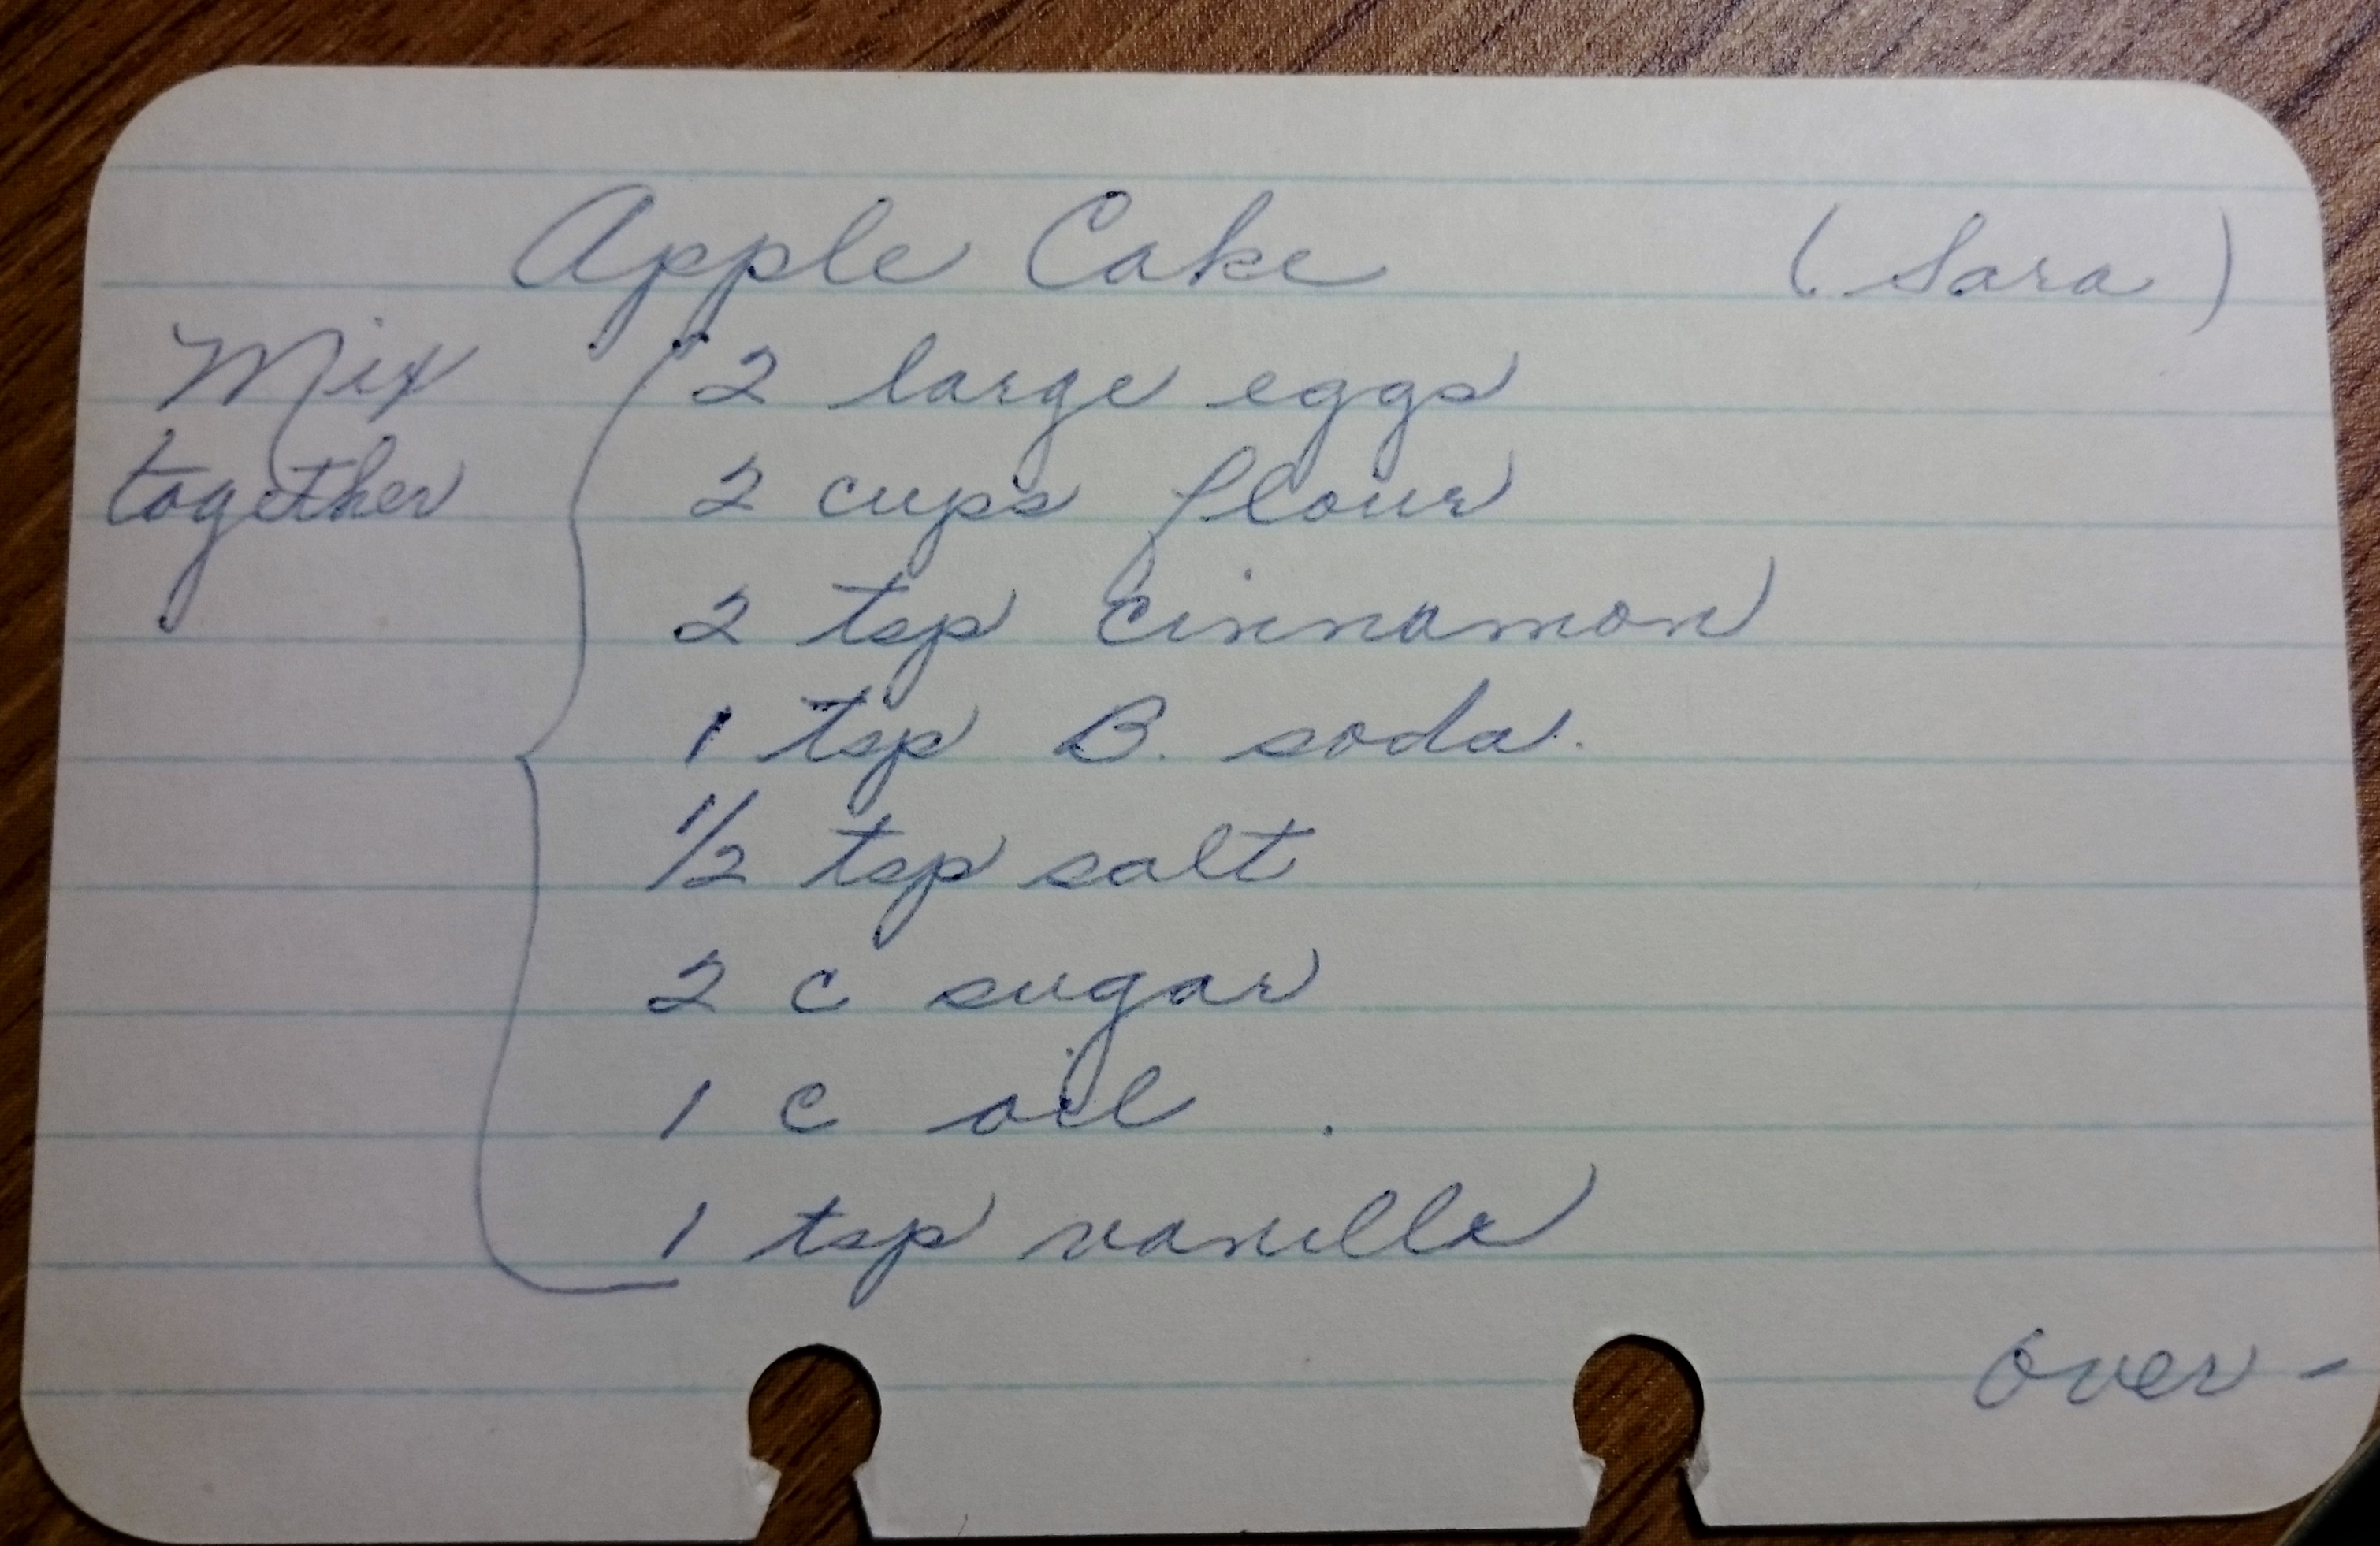 Apple Cake (Sara)
Mix together
2 large eggs
2 cups flour
2 tsp cinnamon
1 tsp B. soda.
1/2 tsp salt
2 c sugar
1 c oil .
1 tsp vanilla
over -